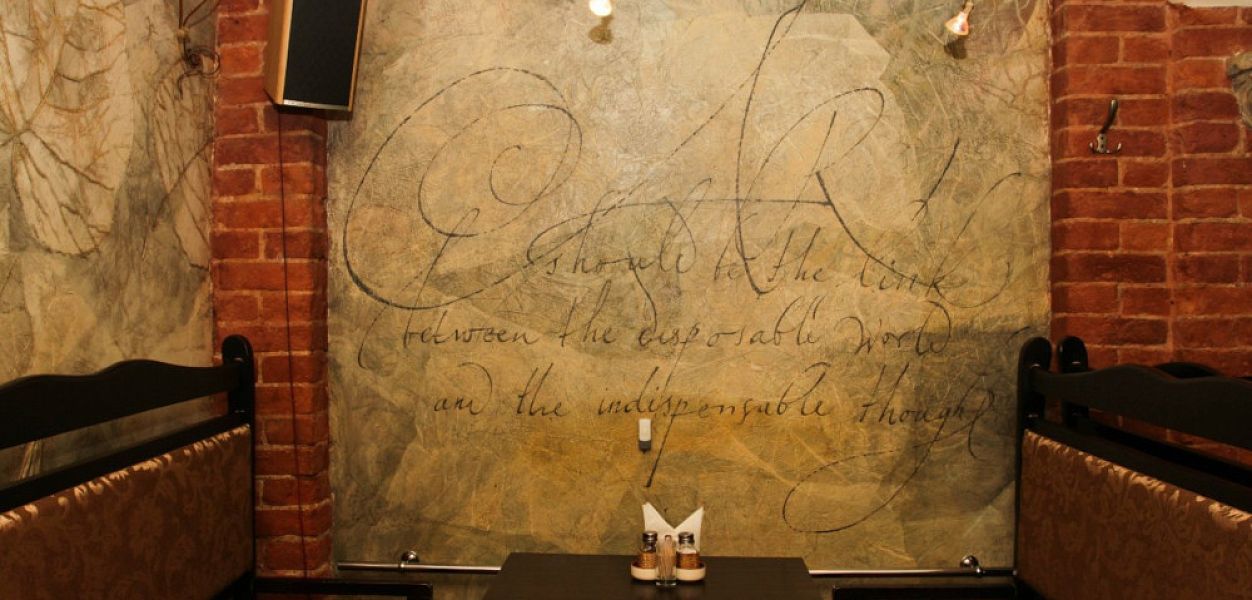 ART
should be the link
between the disposable world
and the indispensable thought